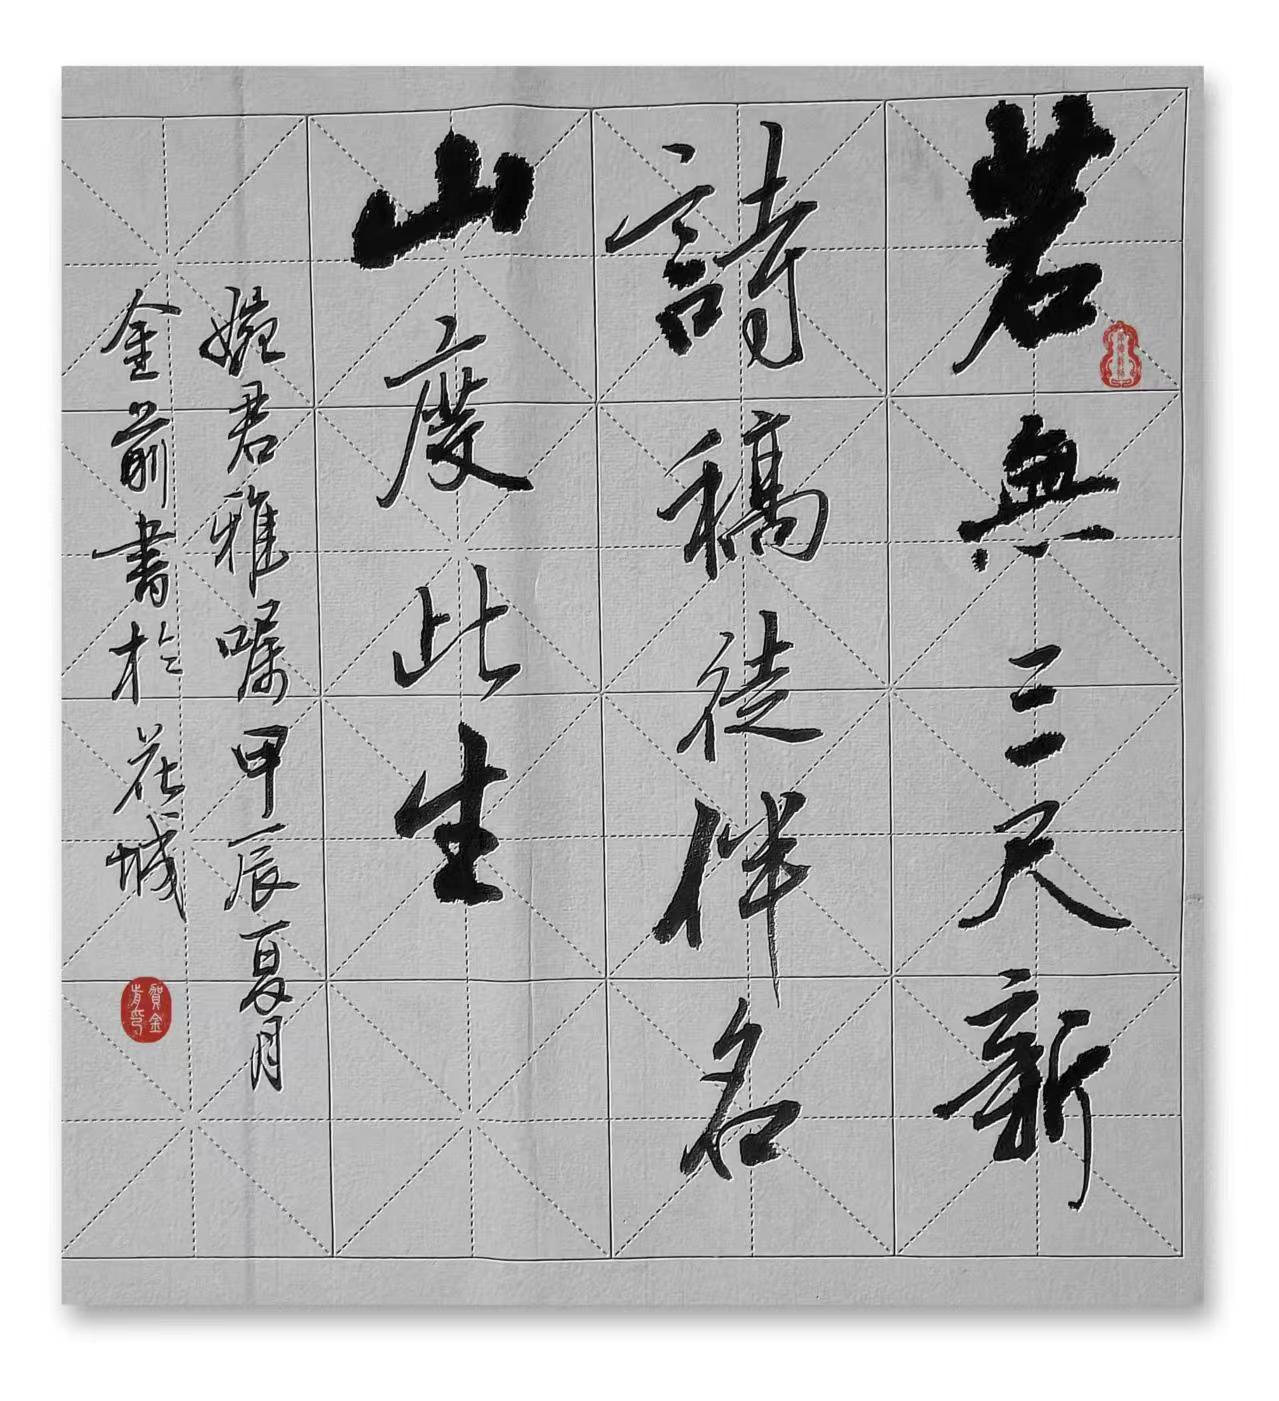 若無三尺新
詩稿徒伴名
山度此生
婉君雅嘱甲辰夏月
金前書於花城
賀金